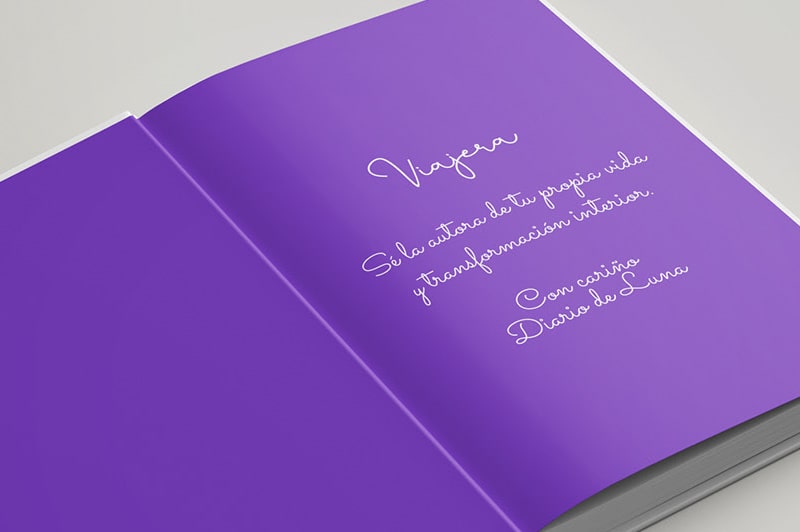 Viajera
Sé la autora de tu propia vida
y transformación interior.
Con cariño
Diario de Luna